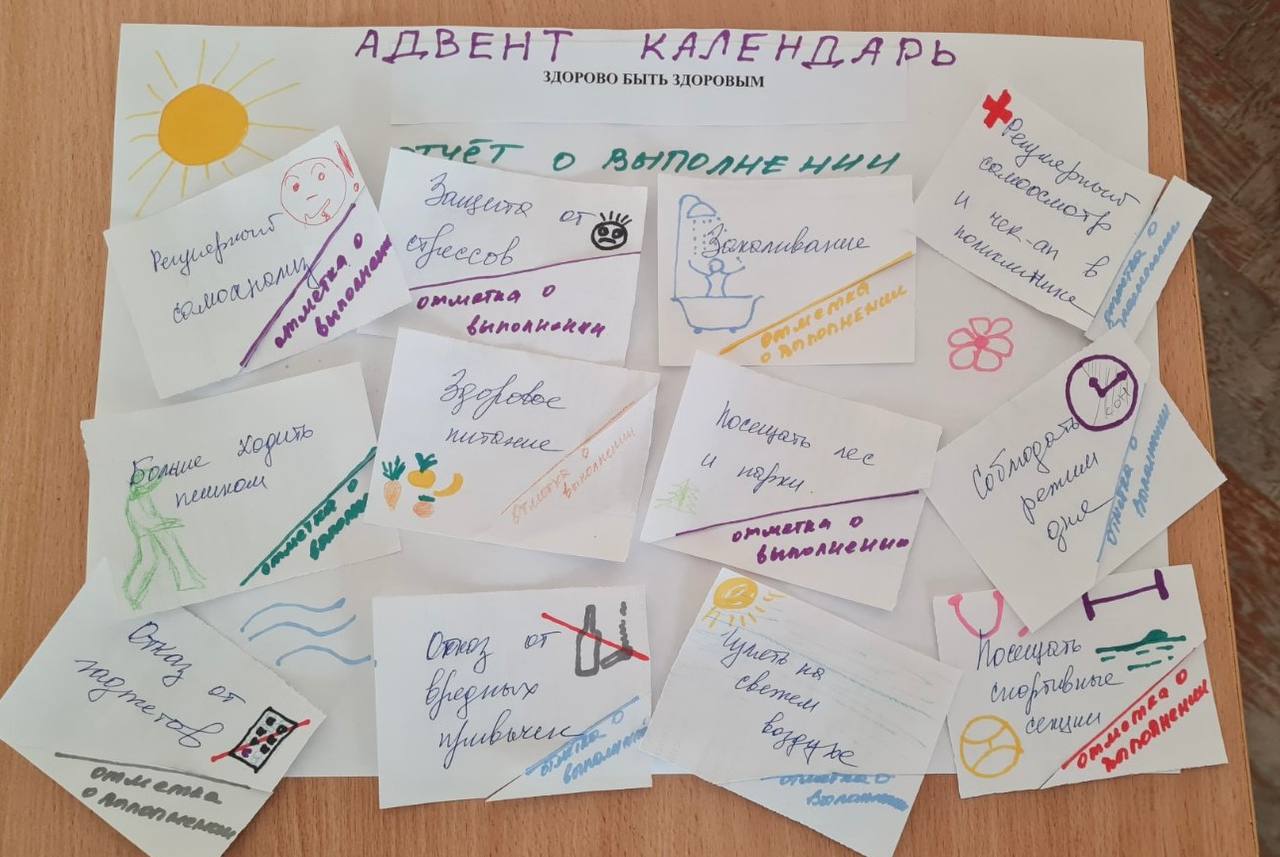 АДВЕНТ КАЛЕНДАРЬ
ЗДОРОВО БЫТЬ ЗДОРОВЫМ
ОТЧЁТ О ВЫПОЛНЕНИИ
Регулярный
самоанализ
отметка о
выполнени
Защита от
стрессов
отметка о
выполнении
Закаливание
отметка
о выполнении
Регулярный
самоосмотр
и чек-ап в
поликлинике
отметка о
выполнении
Больше ходить
пешком
отметка о
выполн
Здоровое
питание
отметка о
выполнении
Посещать лес
и парки
отметка о
выполнении
Соблюдать
режим
дня
отметка о
выполнении
Отказ от
гаджетов
отметка
о выполнении
Отказ от
вредных
привычек
отметка о
выполнении
Гулять на
свежем
воздухе
отметка о
выполнении
Посещать
спортивные
секции
отметка о
выполнении